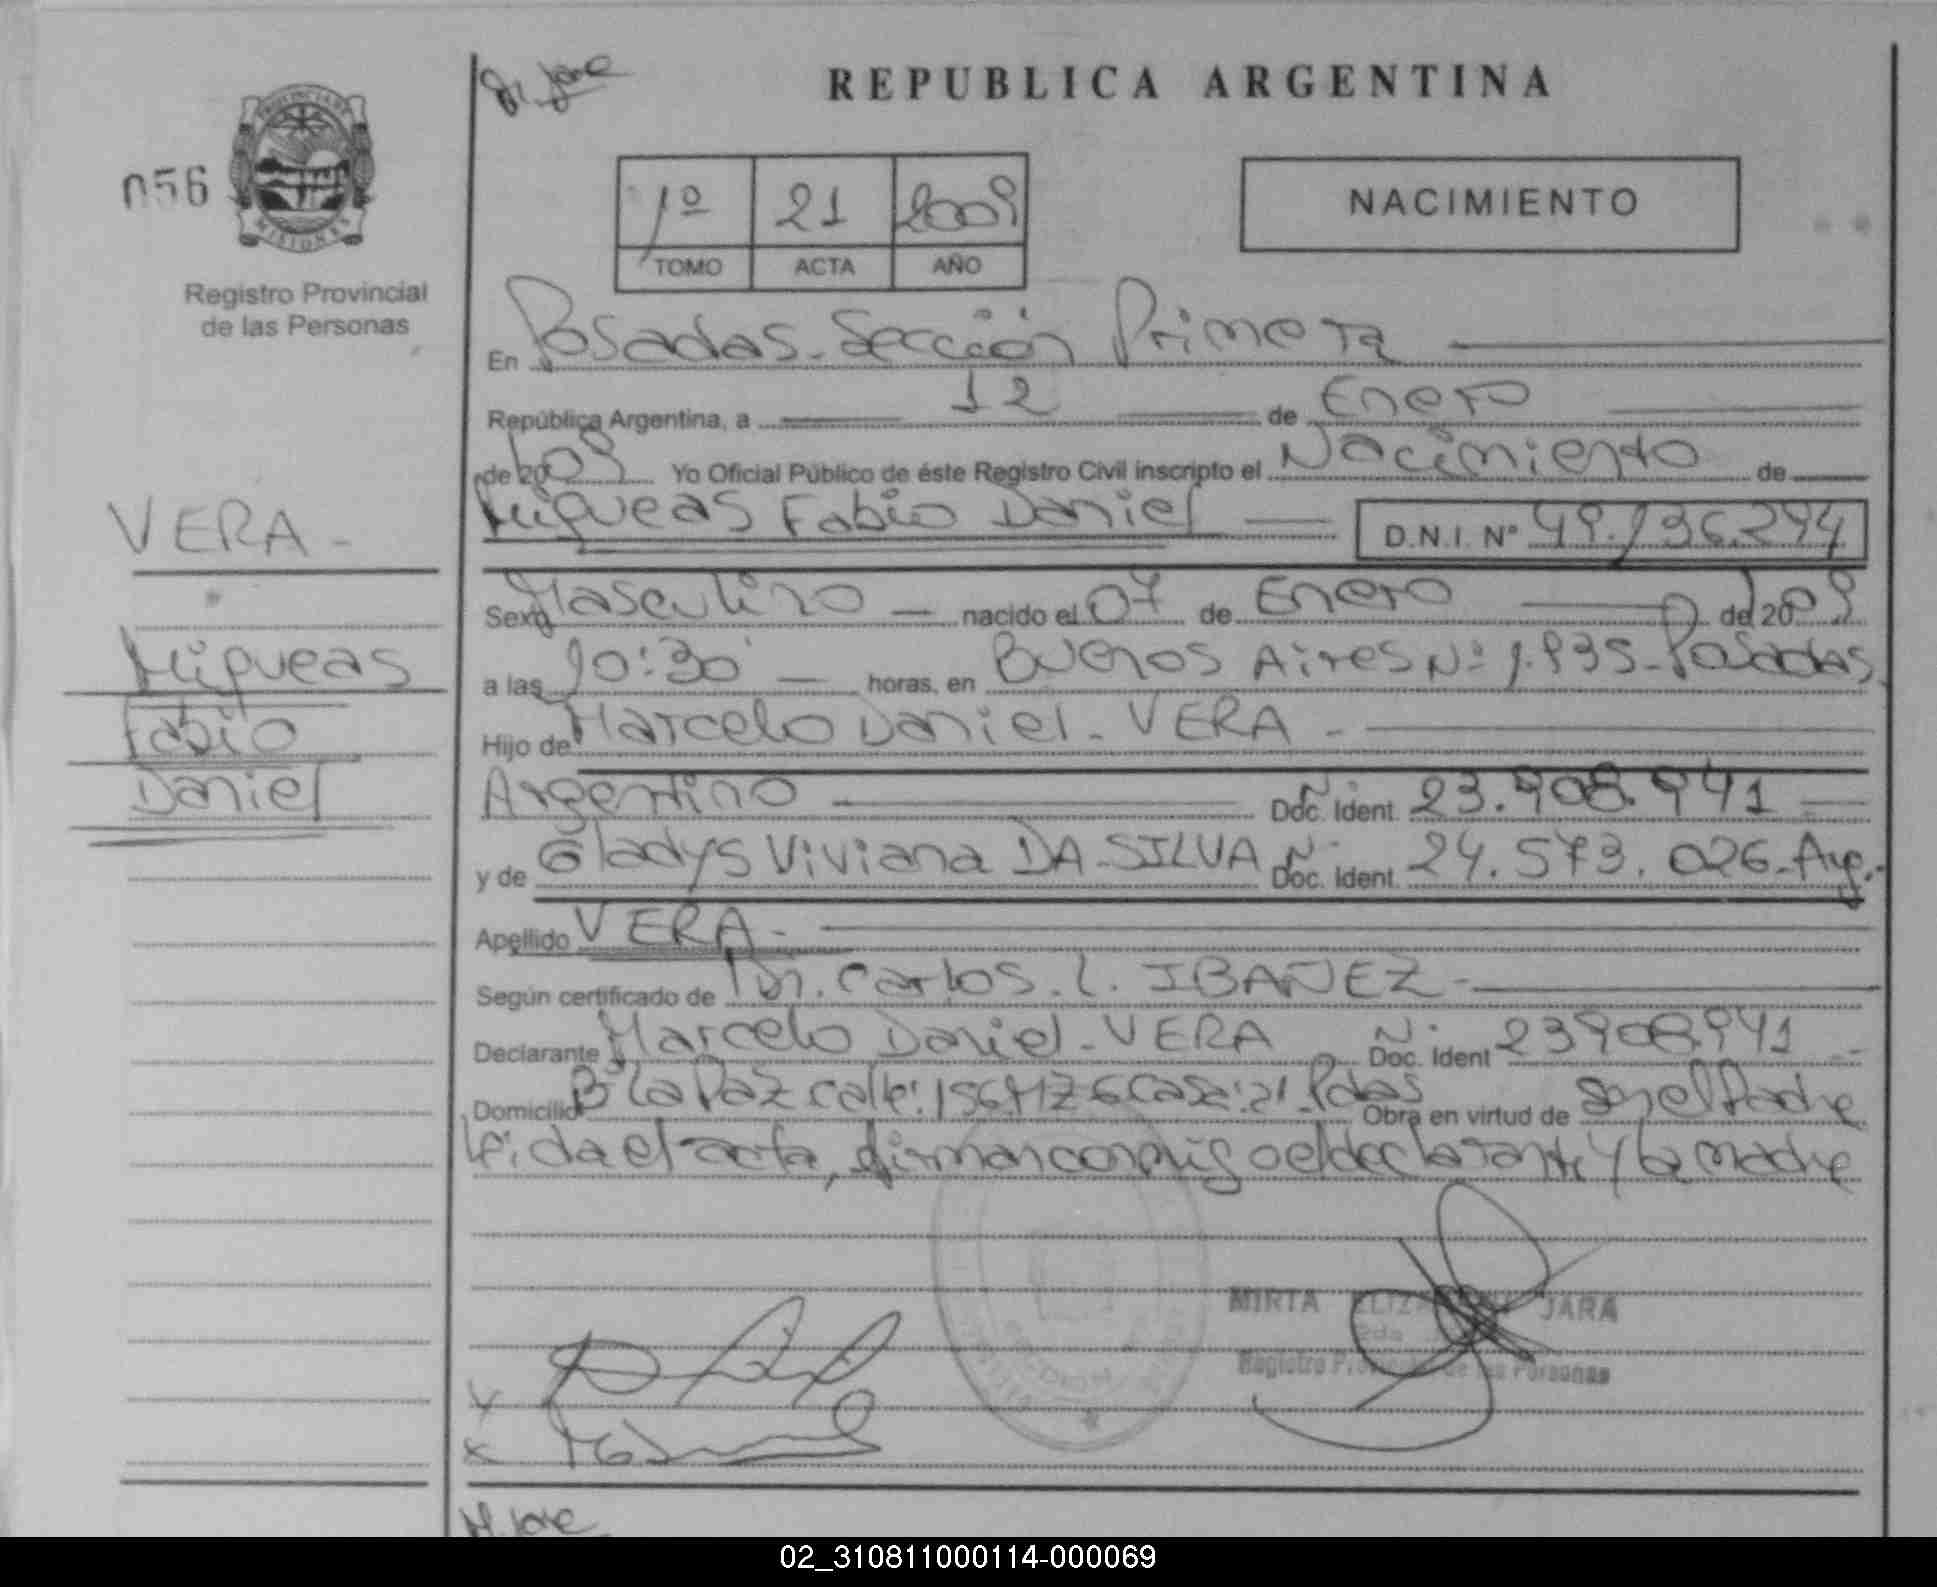 REPUBLICA ARGENTINA
056
PROVINCIA DE
MISIONES
Registro Provincial
de las Personas
1º 21 2009
TOMO ACTA AÑO
NACIMIENTO
En Posadas - Sección Primera
República Argentina, a 12 de Enero
de 2009 Yo Oficial Público de éste Registro Civil inscripto el Nacimiento de
Miqueas Fabio Daniel D.N.I. Nº 49.136.294
VERA -
Miqueas
Fabio
Daniel
Sexo Masculino nacido el 07 de Enero de 2009
a las 10:30 horas, en Buenos Aires Nº 1.935 - Posadas
Hijo de Marcelo Daniel - VERA -
Argentino Doc. Ident. 23.908.941
y de Gladys Viviana DA SILVA Doc. Ident. 24.573.026 - Arg.-
Apellido VERA -
Según certificado de Dr. Carlos. L. IBAÑEZ -
Declarante Marcelo Daniel - VERA Doc. Ident 23908941
Domicilio Bº La Paz calle: 156 MZ 6 Casa: 21 - Pdas Obra en virtud de ser el Padre
Leida el acta, firman conmigo el declarante y la madre
MIRTA ELIZABETH JARA
Registro Provincial de las Personas
02_310811000114-000069